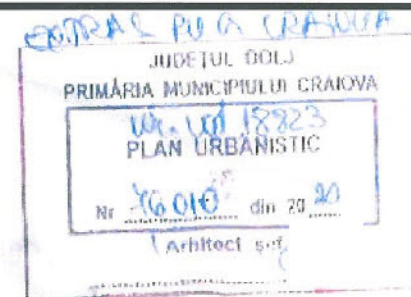 EXTRAS PUG CRAIOVA
JUDEȚUL DOLJ
PRIMĂRIA MUNICIPIULUI CRAIOVA
18823
PLAN URBANISTIC
Nr 76010 din 20 20
Arhitect șef,